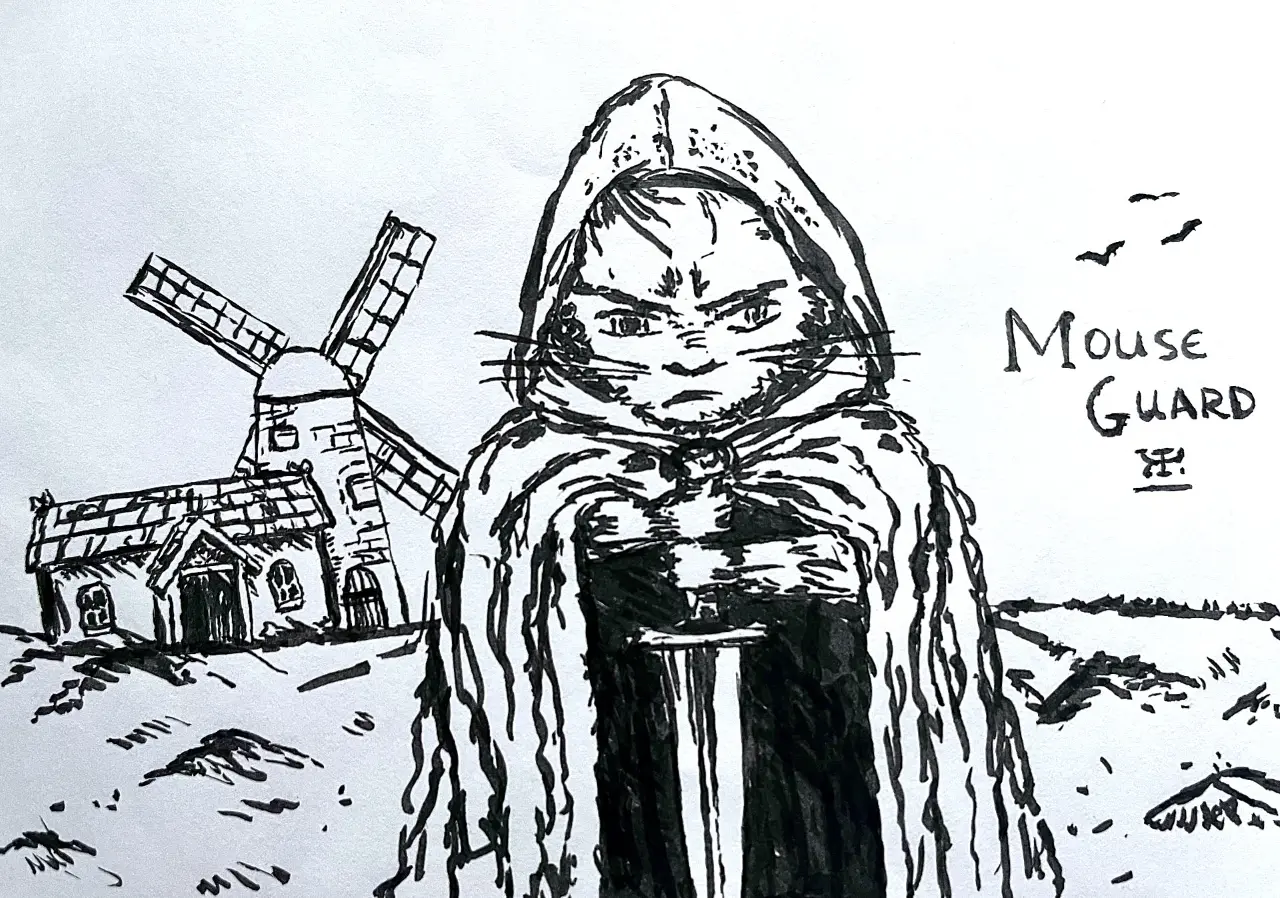 Mouse
Guard